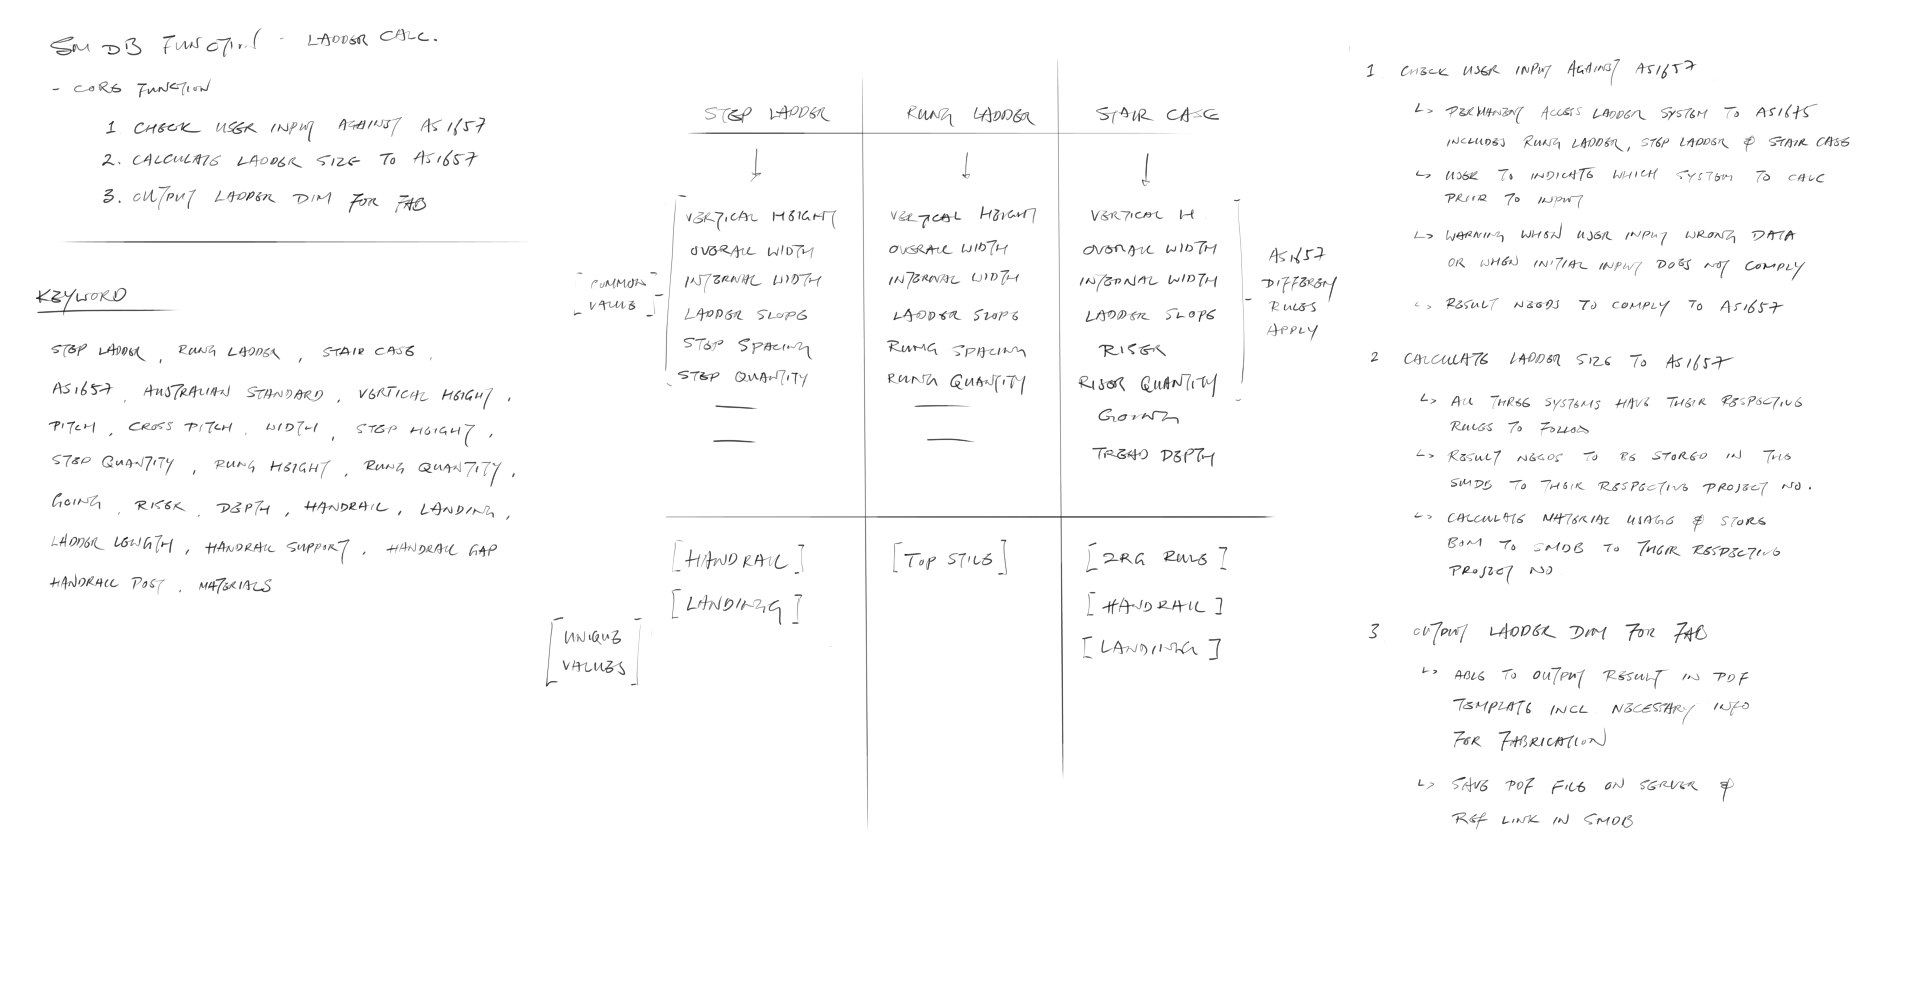 SMDB FUNCTION - LADDER CALC.
- CORE FUNCTION
1 CHECK USER INPUT AGAINST AS1657
2. CALCULATE LADDER SIZE TO AS1657
3. OUTPUT LADDER DIM FOR FAB
KEYWORD
STEP LADDER, RUNG LADDER, STAIR CASE,
AS1657, AUSTRALIAN STANDARD, VERTICAL HEIGHT,
PITCH, CROSS PITCH, WIDTH, STEP HEIGHT,
STEP QUANTITY, RUNG HEIGHT, RUNG QUANTITY,
GOING, RISER, DEPTH, HANDRAIL, LANDING,
LADDER LENGTH, HANDRAIL SUPPORT, HANDRAIL GAP
HANDRAIL POST, MATERIALS
STEP LADDER
VERTICAL HEIGHT
OVERALL WIDTH
INTERNAL WIDTH
LADDER SLOPE
STEP SPACING
STEP QUANTITY
[COMMON
VALUE]
[HANDRAIL]
[LANDING]
[UNIQUE
VALUES]
RUNG LADDER
VERTICAL HEIGHT
OVERALL WIDTH
INTERNAL WIDTH
LADDER SLOPE
RUNG SPACING
RUNG QUANTITY
[TOP STILE]
STAIR CASE
VERTICAL H.
OVERALL WIDTH
INTERNAL WIDTH
LADDER SLOPE
RISER
RISER QUANTITY
GOING
TREAD DEPTH
AS1657
DIFFERENT
RULES
APPLY
[2RG RULE]
[HANDRAIL]
[LANDING]
1 CHECK USER INPUT AGAINST AS1657
↳ PERMANENT ACCESS LADDER SYSTEM TO AS1675
INCLUDES RUNG LADDER, STEP LADDER & STAIR CASE
↳ USER TO INDICATE WHICH SYSTEM TO CALC
PRIOR TO INPUT
↳ WARNING WHEN USER INPUT WRONG DATA
OR WHEN INITIAL INPUT DOES NOT COMPLY
↳ RESULT NEEDS TO COMPLY TO AS1657
2 CALCULATE LADDER SIZE TO AS1657
↳ ALL THREE SYSTEMS HAVE THEIR RESPECTIVE
RULES TO FOLLOW
↳ RESULT NEEDS TO BE STORED IN THE
SMDB TO THEIR RESPECTIVE PROJECT NO.
↳ CALCULATE MATERIAL USAGE & STORE
BOM TO SMDB TO THEIR RESPECTIVE
PROJECT NO
3 OUTPUT LADDER DIM FOR FAB
↳ ABLE TO OUTPUT RESULT IN PDF
TEMPLATE INCL NECESSARY INFO
FOR FABRICATION
↳ SAVE PDF FILE ON SERVER &
REF LINK IN SMDB